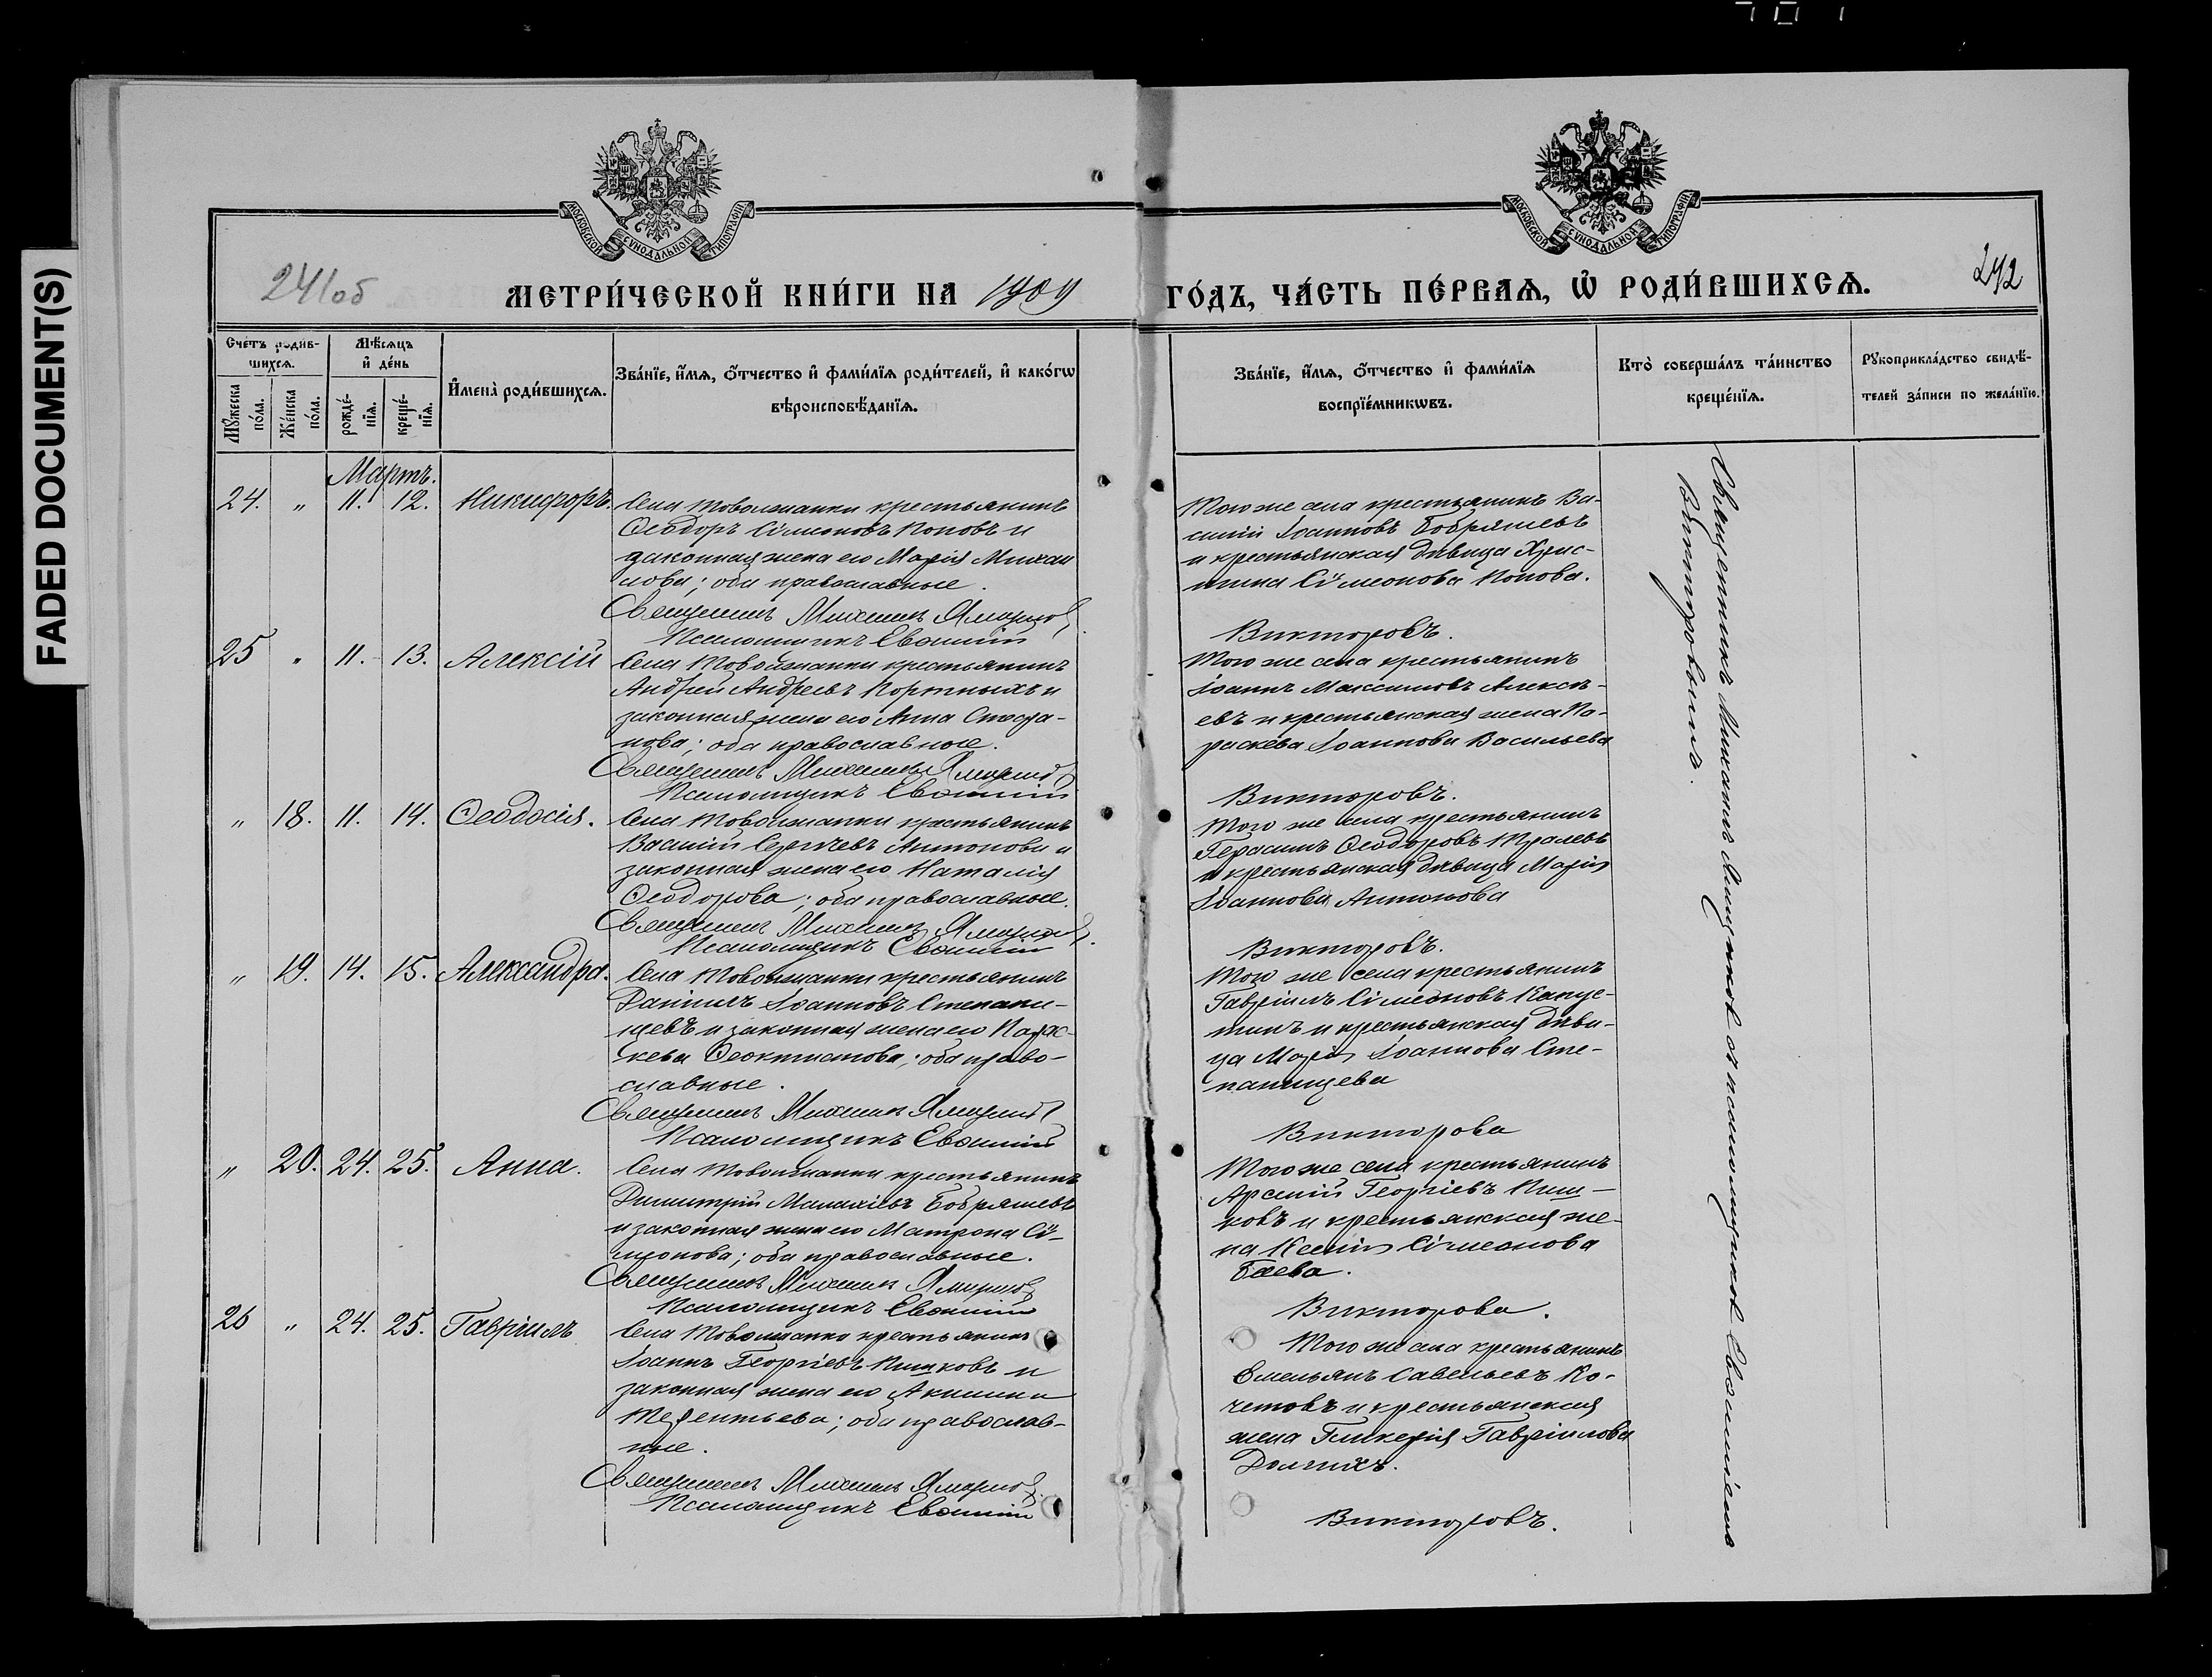 FADED DOCUMENT(S)
МОСКОВСКОЙ СУНОДАЛЬНОЙ ТИПОГРАФІИ
МОСКОВСКОЙ СУНОДАЛЬНОЙ ТИПОГРАФІИ
241об
МЕТРИ́ЧЕСКОЙ КНИ́ГИ НА 1909
ГО́ДЪ, ЧА́СТЬ ПЕ́РВАѦ, Ѡ҆ РОДИ́ВШИХСѦ.
242
Сче́тъ роди́в-
шихсѧ.
Мꙋ́жеска
по́ла.
Же́нска
по́ла.
Мѣ́сѧцъ
и҆ де́нь
рожде́-
нїѧ.
креще́-
нїѧ.
И҆мена̀ роди́вшихсѧ.
Зва́нїе, и҆́мѧ, ѻ҆́тчество и҆ фами́лїѧ роди́телей, и҆ како́гѡ
вѣроисповѣ́данїѧ.
Зва́нїе, и҆́мѧ, ѻ҆́тчество и҆ фами́лїѧ
воспрїе́мникѡвъ.
Кто̀ соверша́лъ та́инство
креще́нїѧ.
Рꙋкоприкла́дство свидѣ́-
телей за́писи по жела́нїю.
Мартъ.
24. " 11. 12. Никифоръ.
Села крестьянинъ
Ѳеодоръ Сѵмеоновъ Поповъ и
законная жена его Марія Михаи
лова; оба православные.
Священникъ Михаилъ
Псаломщикъ Евѳимій
Того же села крестьянинъ Ва-
силій Іоанновъ Бобряшевъ
и крестьянская дѣвица Хрис-
тина Сѵмеонова Попова.
Викторовъ.
25 " 11. 13. Алексій
Села крестьянинъ
Андрей Андреевъ Портныхъ и
законная жена его Анна Стефа-
нова; оба православные.
Священникъ Михаилъ
Псаломщикъ Евѳимій
Того же села крестьянинъ
Іоаннъ Максимовъ Алексѣ-
евъ и крестьянская жена Па-
раскева Іоаннова Васильева
Викторовъ.
" 18. 11. 14. Ѳеодосія.
Села крестьянинъ
Василій Сергѣевъ Антоновъ и
законная жена его Наталія
Ѳеодорова; оба православные.
Священникъ Михаилъ
Псаломщикъ Евѳимій
Того же села крестьянинъ
Герасимъ Ѳеодоровъ
и крестьянская дѣвица Марія
Іоаннова Антонова
Викторовъ.
" 19. 14. 15. Александра.
Села крестьянинъ
Даніилъ Іоанновъ Степани-
щевъ и законная жена его Парас-
кева Ѳеоктистова; оба право-
славные.
Священникъ Михаилъ
Псаломщикъ Евѳимій
Того же села крестьянинъ
Гавріилъ Сѵмеоновъ Капус-
тинъ и крестьянская дѣви-
ца Марія Іоаннова Сте-
панищева
Викторовъ
" 20. 24. 25. Анна.
Села крестьянинъ
Димитрій Малахіевъ Бобряшевъ
и законная жена его Матрона Сѵ-
меонова; оба православные.
Священникъ Михаилъ
Псаломщикъ Евѳимій
Того же села крестьянинъ
Арсеній Георгіевъ Пиш-
ковъ и крестьянская же-
на Ксенія Сѵмеонова
Баева.
Викторовъ.
26 " 24. 25. Гавріилъ
Села крестьянинъ
Іоаннъ Георгіевъ Пишковъ и
законная жена его Акилина
Терентьева; оба православ-
ные.
Священникъ Михаилъ
Псаломщикъ Евѳимій
Того же села крестьянинъ
Емельянъ Савельевъ Ко-
четовъ и крестьянская
жена Гликерія Гавріилова
Долгихъ.
Викторовъ.
Священникъ Михаилъ съ псаломщикомъ Евѳиміемъ
Викторовымъ.